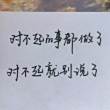 对不起的事都做了
对不起就别说了